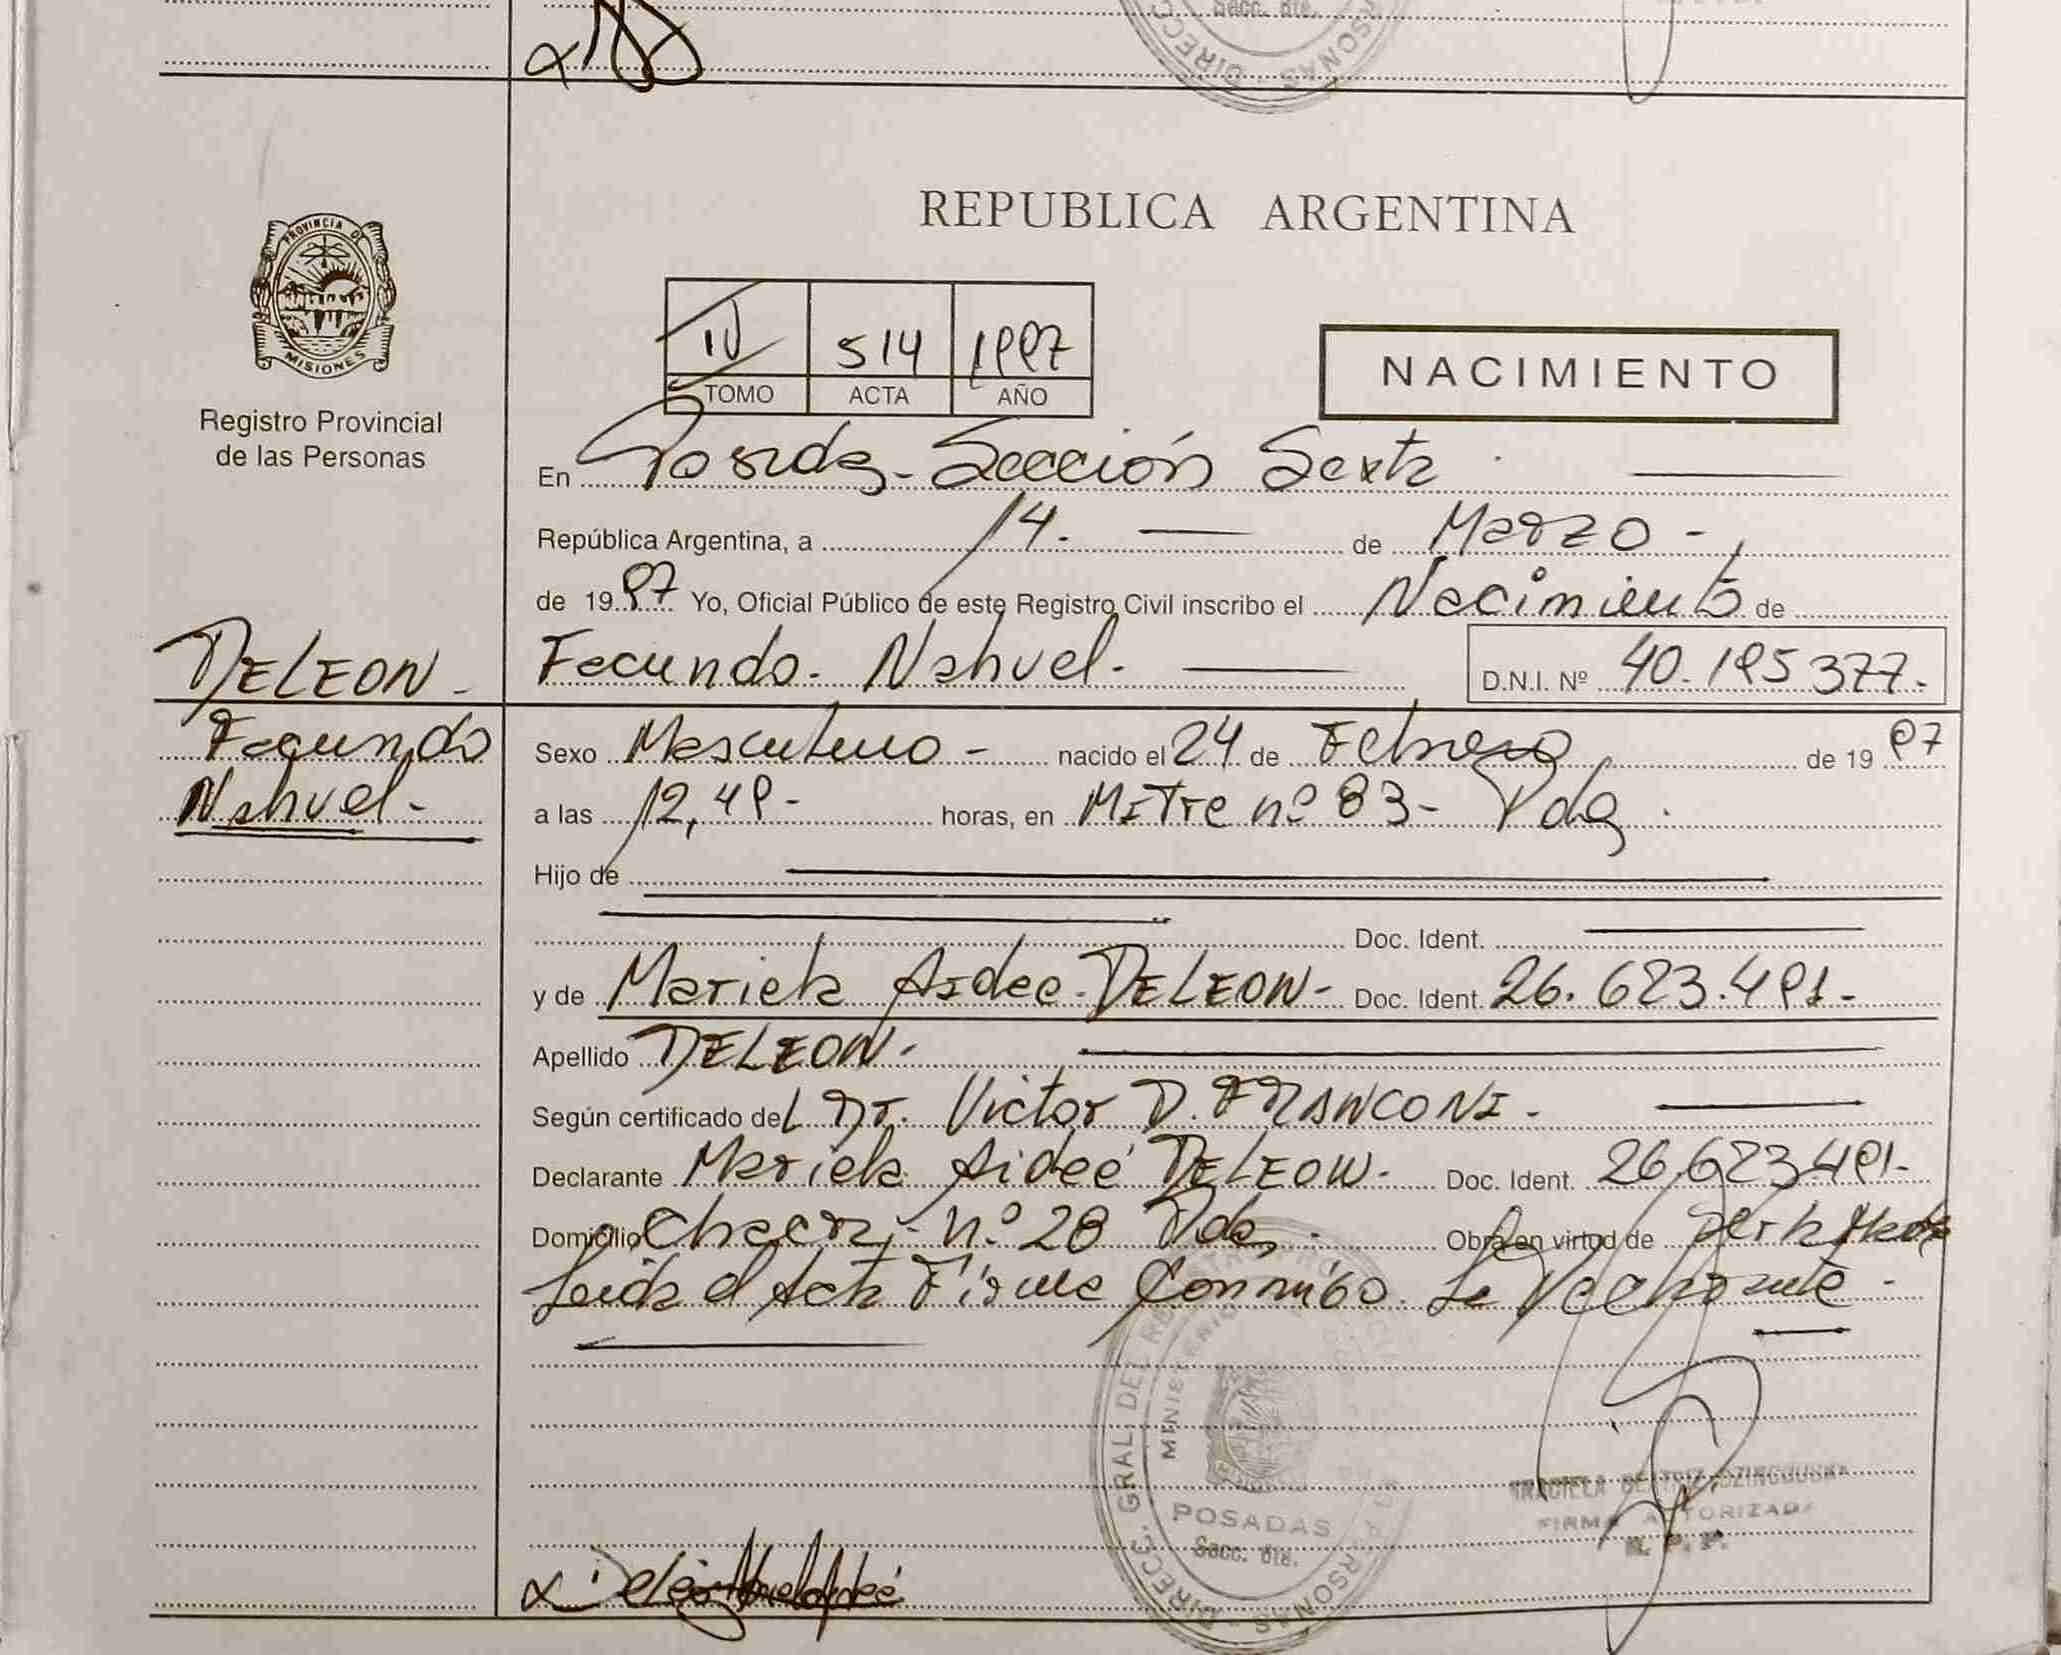 Secc. 6ta.
DIRECC
SONAS
PROVINCIA DE
MISIONES
Registro Provincial
de las Personas
REPUBLICA ARGENTINA
IV 514 1997
TOMO ACTA AÑO
NACIMIENTO
En Posadas - Sección Sexta
República Argentina, a 14. de Marzo -
de 1997 Yo, Oficial Público de este Registro Civil inscribo el Nacimiento de
DELEON - Facundo - Nahuel - D.N.I. Nº 40.195377.
Facundo
Nahuel -
Sexo Masculino - nacido el 24 de Febrero de 1997
a las 12,49 - horas, en Mitre nº 83 - Pdas
Hijo de
Doc. Ident.
y de Mariela Aidee - DELEON - Doc. Ident. 26.623.491 -
Apellido DELEON -
Según certificado del Dr. Victor D. FRANCONI -
Declarante Mariela Aideé DELEON - Doc. Ident. 26.623.491 -
Domicilio nº 28 Pdas. Obra en virtud de
Leida el Acta Firma Conmigo La Declarante -
DIRECC. GRAL. DEL
MINISTERIO
POSADAS
Secc. 6ta.
PERSONAS
GRACIELA BEATRIZ
FIRMA AUTORIZADA
R. P. P.